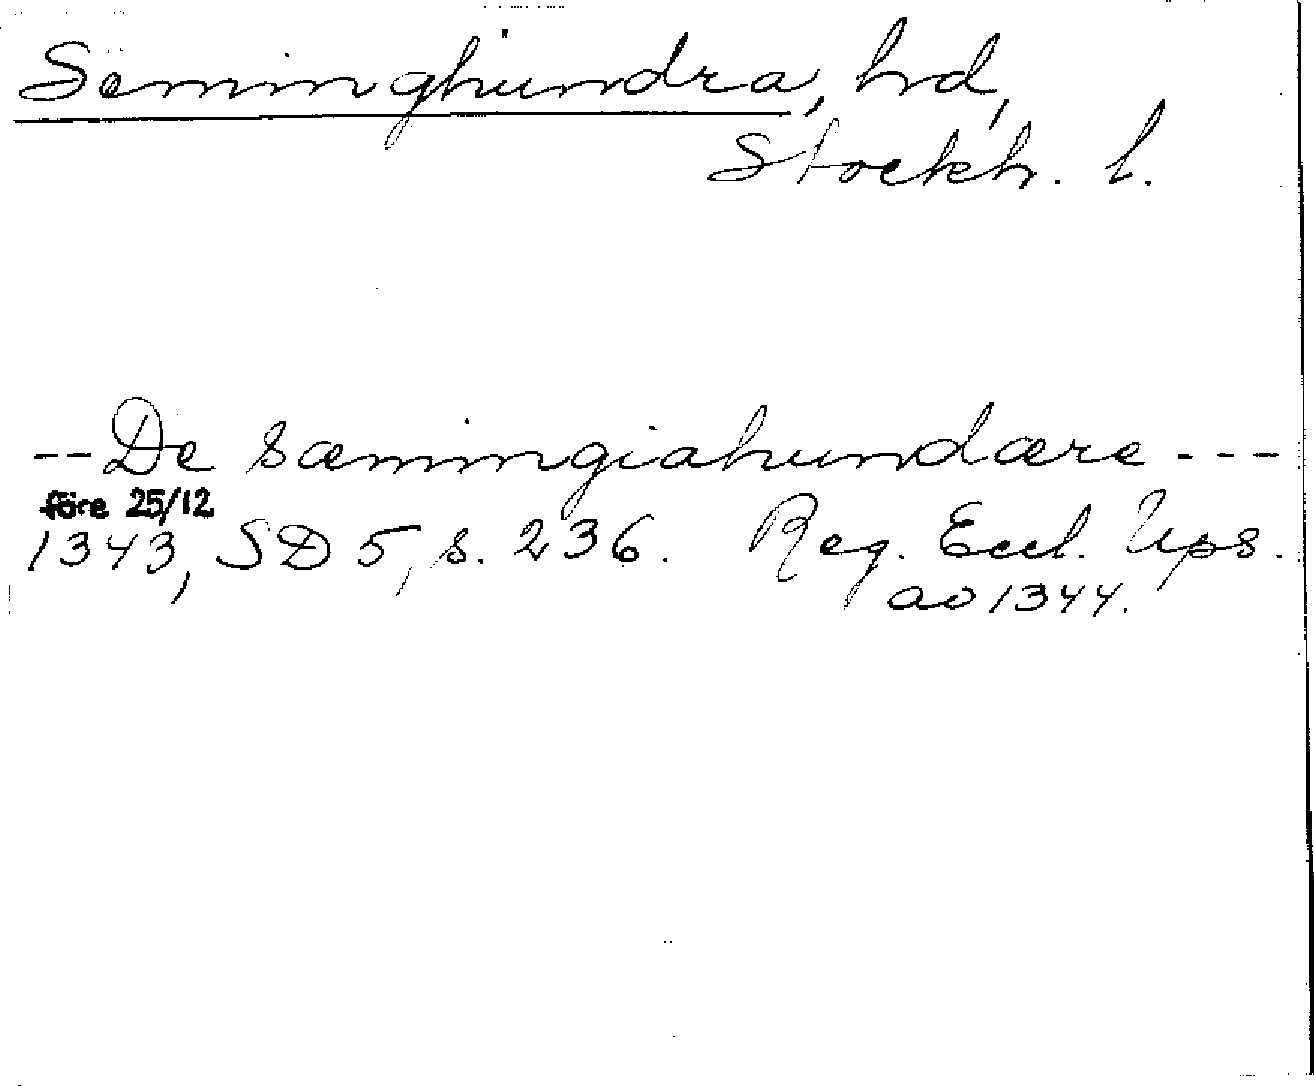 Seminghundra, hd,
Stockh. l.
--De sæmingiahundære---
före 25/12
1343, SD 5, s. 236. Reg. Eccl. Ups.
ao 1344.